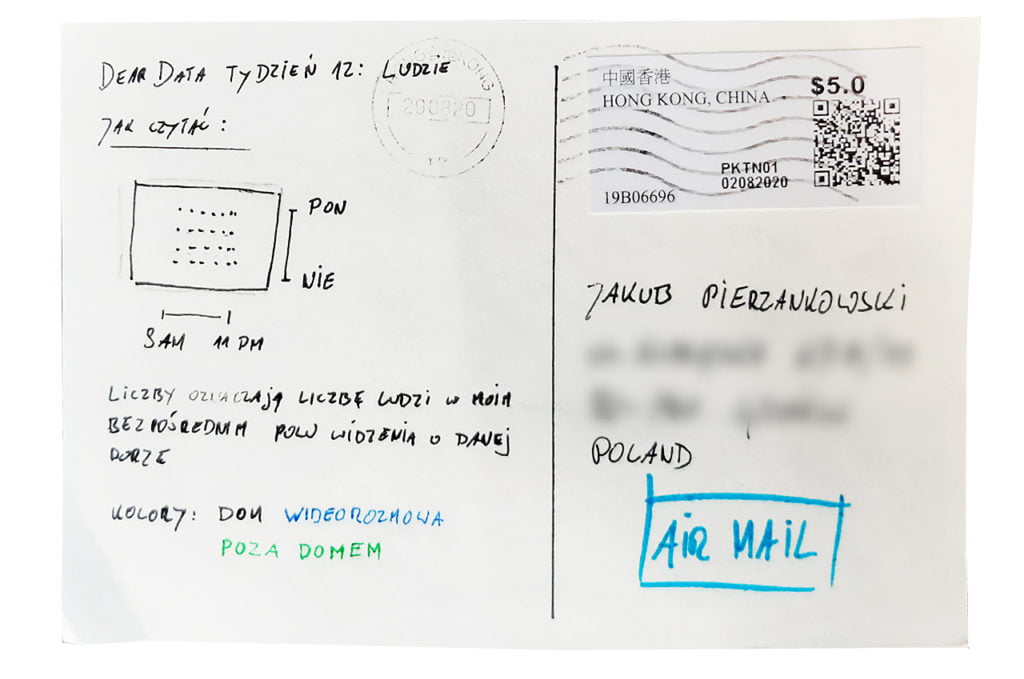 DEAR DATA TYDZIEŃ 12: LUDZIE
JAK CZYTAĆ:
PON
NIE
8AM 11PM
LICZBY OZNACZAJĄ LICZBĘ LUDZI W MOIM
BEZPOŚREDNIM POLU WIDZENIA O DANEJ
PORZE
KOLORY: DOM WIDEOROZMOWA
POZA DOMEM
HONG KONG
290820
中國香港
HONG KONG, CHINA
$5.0
PKTN01
02082020
19B06696
JAKUB PIERZANKOWSKI
POLAND
AIR MAIL